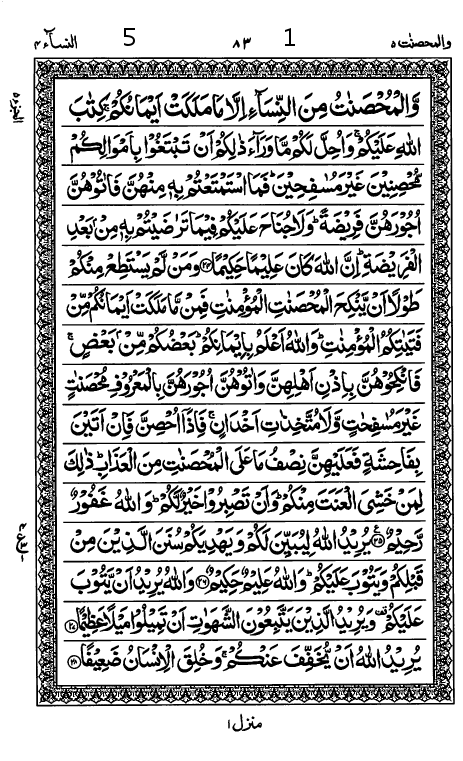 والمحصنت ٥ ٨٣ 1 5 النسآء ٤
وَّالْمُحْصَنٰتُ مِنَ النِّسَآءِ اِلَّا مَا مَلَكَتْ اَيْمَانُكُمْ ۚ كِتٰبَ
اللّٰهِ عَلَيْكُمْ ۚ وَاُحِلَّ لَكُمْ مَّا وَرَآءَ ذٰلِكُمْ اَنْ تَبْتَغُوْا بِاَمْوَالِكُمْ
مُّحْصِنِيْنَ غَيْرَ مُسٰفِحِيْنَ ؕ فَمَا اسْتَمْتَعْتُمْ بِهٖ مِنْهُنَّ فَاٰتُوْهُنَّ
اُجُوْرَهُنَّ فَرِيْضَةً ؕ وَلَا جُنَاحَ عَلَيْكُمْ فِيْمَا تَرٰضَيْتُمْ بِهٖ مِنْۢ بَعْدِ
الْفَرِيْضَةِ ؕ اِنَّ اللّٰهَ كَانَ عَلِيْمًا حَكِيْمًا ﴿۲۴﴾ وَمَنْ لَّمْ يَسْتَطِعْ مِنْكُمْ
طَوْلًا اَنْ يَّنْكِحَ الْمُحْصَنٰتِ الْمُؤْمِنٰتِ فَمِنْ مَّا مَلَكَتْ اَيْمَانُكُمْ مِّنْ
فَتَيٰتِكُمُ الْمُؤْمِنٰتِ ؕ وَاللّٰهُ اَعْلَمُ بِاِيْمَانِكُمْ ؕ بَعْضُكُمْ مِّنْۢ بَعْضٍ ۚ
فَانْكِحُوْهُنَّ بِاِذْنِ اَهْلِهِنَّ وَاٰتُوْهُنَّ اُجُوْرَهُنَّ بِالْمَعْرُوْفِ مُحْصَنٰتٍ
غَيْرَ مُسٰفِحٰتٍ وَّلَا مُتَّخِذٰتِ اَخْدَانٍ ۚ فَاِذَاۤ اُحْصِنَّ فَاِنْ اَتَيْنَ
بِفَاحِشَةٍ فَعَلَيْهِنَّ نِصْفُ مَا عَلَى الْمُحْصَنٰتِ مِنَ الْعَذَابِ ؕ ذٰلِكَ
لِمَنْ خَشِيَ الْعَنَتَ مِنْكُمْ ؕ وَاَنْ تَصْبِرُوْا خَيْرٌ لَّكُمْ ؕ وَاللّٰهُ غَفُوْرٌ
رَّحِيْمٌ ﴿۲۵﴾ يُرِيْدُ اللّٰهُ لِيُبَيِّنَ لَكُمْ وَيَهْدِيَكُمْ سُنَنَ الَّذِيْنَ مِنْ
قَبْلِكُمْ وَيَتُوْبَ عَلَيْكُمْ ؕ وَاللّٰهُ عَلِيْمٌ حَكِيْمٌ ﴿۲۶﴾ وَاللّٰهُ يُرِيْدُ اَنْ يَّتُوْبَ
عَلَيْكُمْ ۟ وَيُرِيْدُ الَّذِيْنَ يَتَّبِعُوْنَ الشَّهَوٰتِ اَنْ تَمِيْلُوْا مَيْلًا عَظِيْمًا ﴿۲۷﴾
يُرِيْدُ اللّٰهُ اَنْ يُّخَفِّفَ عَنْكُمْ ۚ وَخُلِقَ الْاِنْسَانُ ضَعِيْفًا ﴿۲۸﴾
منزل ١